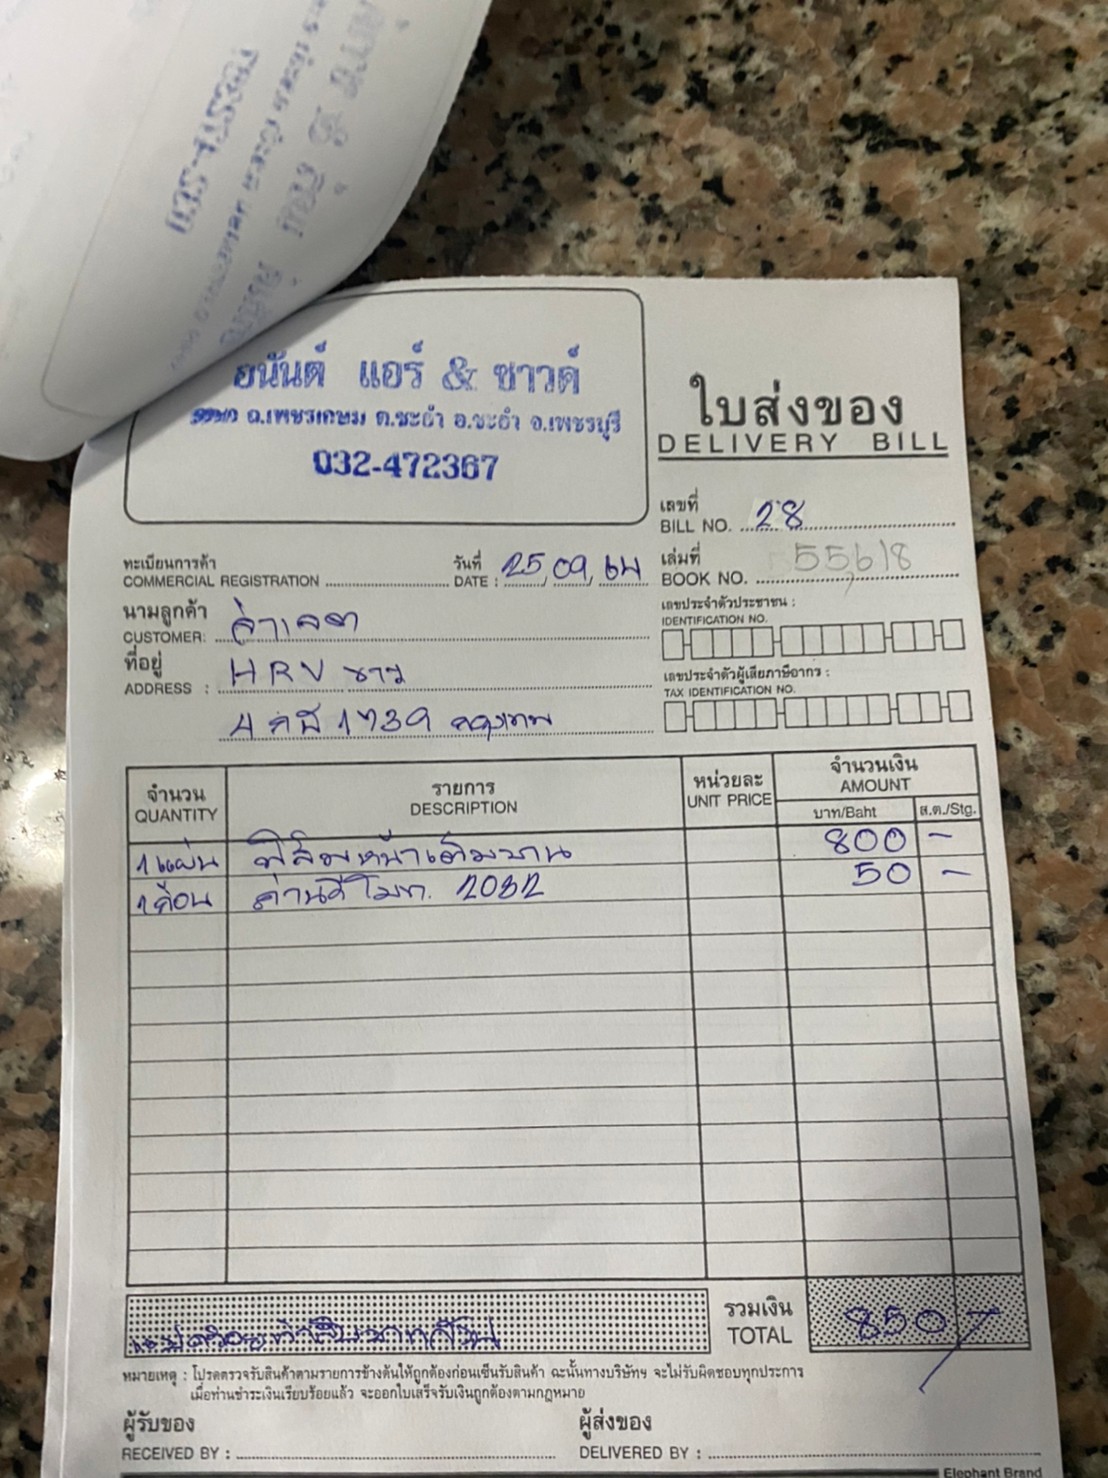 อนันต์ แอร์ & ซาวด์
ถ.เพชรเกษม ต.ชะอำ อ.ชะอำ จ.เพชรบุรี
032-472367
ใบส่งของ
DELIVERY BILL
เลขที่
BILL NO. 28
ทะเบียนการค้า
COMMERCIAL REGISTRATION
วันที่
DATE : 25, 09, 64
เล่มที่
BOOK NO. 55618
นามลูกค้า
CUSTOMER:
เลขประจำตัวประชาชน :
IDENTIFICATION NO.
ที่อยู่
ADDRESS : HRV ขาว
4 กฆ 1739 กรุงเทพ
เลขประจำตัวผู้เสียภาษีอากร :
TAX IDENTIFICATION NO.
จำนวน
QUANTITY
รายการ
DESCRIPTION
หน่วยละ
UNIT PRICE
จำนวนเงิน
AMOUNT
บาท/Baht
ส.ต./Stg.
1 แผ่น ฟิล์มหน้าเต็มบาน 800 -
1 ก้อน ถ่านรีโมท. 2032 50 -
รวมเงิน
TOTAL
850
หมายเหตุ : โปรดตรวจรับสินค้าตามรายการข้างต้นให้ถูกต้องก่อนเซ็นรับสินค้า ฉะนั้นทางบริษัทฯ จะไม่รับผิดชอบทุกประการ
เมื่อท่านชำระเงินเรียบร้อยแล้ว จะออกใบเสร็จรับเงินถูกต้องตามกฎหมาย
ผู้รับของ
RECEIVED BY :
ผู้ส่งของ
DELIVERED BY :
Elephant Brand